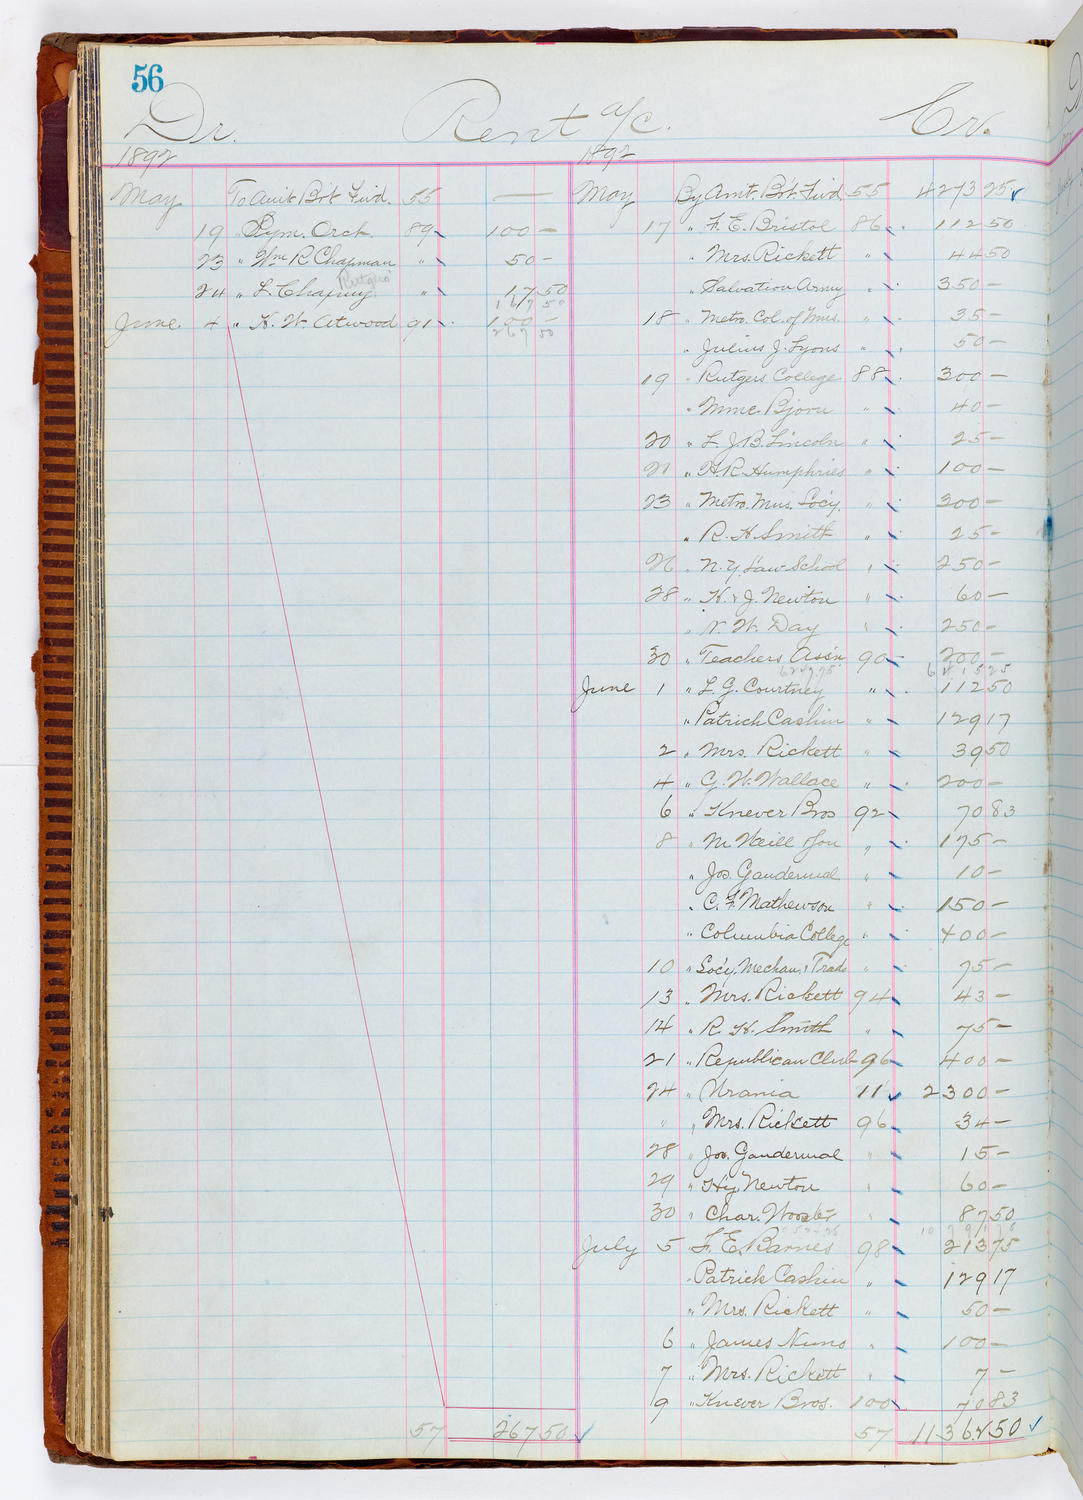 56
Dr. Rent a/c. Cr.
1892 1892
May To Amt. Bo't Fwd. 55 —
19 " Sym. Orch. 89 100 —
23 " Wm R Chapman " 50 —
24 " L. Chapuy " 17 50
Rutgers
167 50
June 4 " H. W. Atwood 91 100 —
267 50
57 267 50
May By Amt. Bo't Fwd 55 4273 25
17 " F. E. Bristol 86 112 50
" Mrs. Rickett " 44 50
" Salvation Army " 350 —
18 " Metro. Col. of Mus. " 35 —
" Julius J. Lyons " 50 —
19 " Rutgers College 88 300 —
" Mme. Bjorn " 40 —
20 " L. J. B. Lincoln " 25 —
21 " H. R. Humphries " 100 —
23 " Metro. Mus. Soc'y. " 300 —
" R. H. Smith " 25 —
26 " N. Y. Law School " 250 —
28 " H. & J. Newton " 60 —
" V. W. Day " 250 —
30 " Teachers Ass'n 90 200 —
6415 25
June 1 " L. G. Courtney " 112 50
" Patrick Cashin " 129 17
2 " Mrs. Rickett " 39 50
4 " G. W. Wallace " 200 —
6 " Knever Bros 92 70 83
8 " M Weill " 175 —
" Jos. Gandermal " 10 —
" C. F. Mathewson " 150 —
" Columbia College " 400 —
10 " Soc'y. Mechan. & Trads " 75 —
13 " Mrs. Rickett 94 43 —
14 " R. H. Smith " 75 —
21 " Republican Club 96 400 —
24 " Urania 11 2300 —
" " Mrs. Rickett 96 34 —
28 " Jos. Gandermal " 15 —
29 " Hy. Newton " 60 —
30 " Char. " 87 50
July 5 " F. E. Barnes 98 213 75
" Patrick Cashin " 129 17
" Mrs. Rickett " 50 —
6 " James Nuno " 100 —
7 " Mrs. Rickett " 7 —
9 " Knever Bros. 100 70 83
57 11362 50